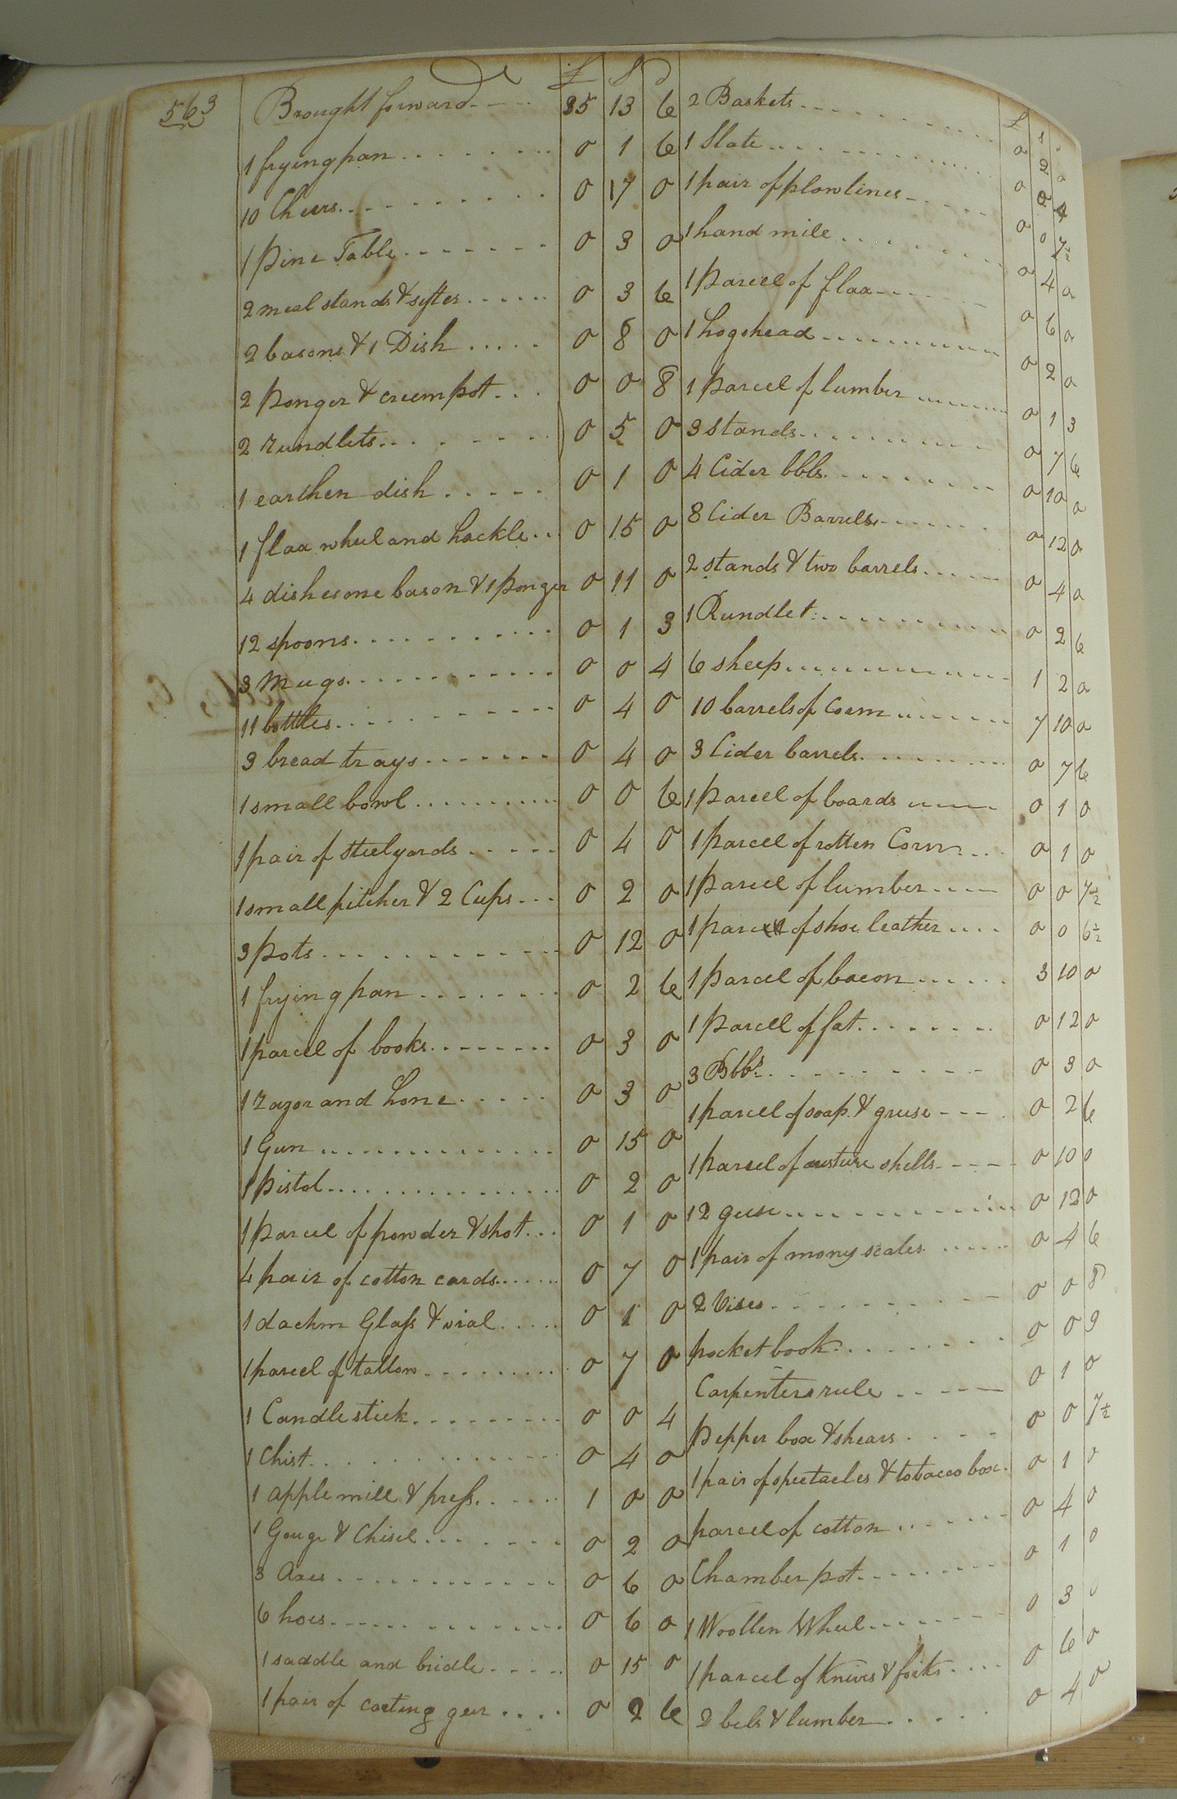 563
£ S D
Brought forward 35 13 6
1 frying pan 0 1 6
10 Cheers 0 17 0
1 pine Table 0 3 0
2 meal stands & sifter 0 3 6
2 basons & 1 Dish 0 8 0
2 ponger & creem pot 0 0 8
2 rundlets 0 5 0
1 earthen dish 0 1 0
1 flax wheel and hackle 0 15 0
4 dishes one bason & 1 ponger 0 11 0
12 spoons 0 1 3
3 mugs 0 0 4
11 bottles 0 4 0
3 bread trays 0 4 0
1 small bowl 0 0 6
1 pair of steelyards 0 4 0
1 small pitcher & 2 Cups 0 2 0
3 pots 0 12 0
1 frying pan 0 2 6
1 parcel of books 0 3 0
1 razor and hone 0 3 0
1 Gun 0 15 0
1 pistol 0 2 0
1 parcel of powder & shot 0 1 0
4 pair of cotton cards 0 7 0
1 dachm Glass & vial 0 1 0
1 parcel of tallow 0 7 0
1 Candle stick 0 0 4
1 Chist 0 4 0
1 apple mill & press 1 0 0
1 Gouge & Chisel 0 2 0
3 Axes 0 6 0
6 hoes 0 6 0
1 saddle and bridle 0 15 0
1 pair of carting geer 0 2 6
£ s
2 Baskets 0 2 0
1 Slate 0 0 4
1 pair of plow lines 0 0 7½
1 hand mill 0 4 0
1 parcel of flax 0 6 0
1 hogshead 0 2 0
1 parcel of lumber 0 1 3
3 stands 0 7 6
4 Cider bbls 0 10 0
8 Cider Barrels 0 12 0
2 stands & two barrels 0 4 0
1 Rundlet 0 2 6
6 sheep 1 2 0
10 barrels of Corn 7 10 0
3 Cider barrels 0 7 6
1 parcel of boards 0 1 0
1 parcel of rotten Corn 0 1 0
1 parcel of lumber 0 0 7½
1 parcel of shoe leather 0 0 6½
1 parcel of bacon 3 10 0
1 parcel of fat 0 12 0
3 Bbls 0 3 0
1 parcel of soap & greese 0 2 6
1 parcel of austure shells 0 10 0
12 geese 0 12 0
1 pair of mony scales 0 4 6
2 Vises 0 0 8
pocket book 0 0 9
Carpenters rule 0 1 0
pepper box & shears 0 0 7½
1 pair of spectacles & tobacco box 0 1 0
parcel of cotton 0 4 0
Chamber pot 0 1 0
1 Woollen Wheel 0 3 0
1 parcel of knives & forks 0 6 0
2 bels & lumber 0 4 0